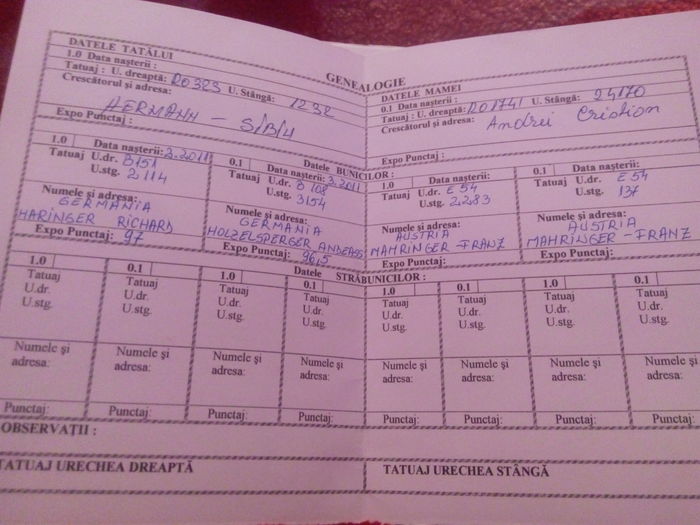 GENEALOGIE
DATELE TATĂLUI
1.0 Data nașterii :
Tatuaj : U. dreaptă: RO323 U. Stângă: 1232
Crescătorul și adresa:
HERMANN - SIBIU
Expo Punctaj :
DATELE MAMEI
0.1 Data nașterii :
Tatuaj : U. dreaptă: RO1741 U. Stângă: 24170
Crescătorul și adresa: Andrei Cristian
Expo Punctaj:
Datele BUNICILOR :
1.0 Data nașterii: 3.2011
Tatuaj U.dr. B151
U.stg. 2114
Numele și adresa:
GERMANIA
HARINGER RICHARD
Expo Punctaj: 97
0.1 Data nașterii: 3.2011
Tatuaj U.dr. B 108
U.stg. 3154
Numele și adresa:
GERMANIA
HOLZELSPERGER ANDEAS
Expo Punctaj: 96,5
1.0 Data nașterii:
Tatuaj U.dr. E 54
U.stg. 2283
Numele și adresa:
AUSTRIA
MAHRINGER FRANZ
Expo Punctaj:
0.1 Data nașterii:
Tatuaj U.dr. E 54
U.stg. 137
Numele și adresa:
AUSTRIA
MAHRINGER - FRANZ
Expo Punctaj:
Datele STRĂBUNICILOR :
1.0 0.1 1.0 0.1 1.0 0.1 1.0 0.1
Tatuaj Tatuaj Tatuaj Tatuaj Tatuaj Tatuaj Tatuaj Tatuaj
U.dr. U.dr. U.dr. U.dr. U.dr. U.dr. U.dr. U.dr.
U.stg. U.stg. U.stg. U.stg. U.stg. U.stg. U.stg. U.stg.
Numele și Numele și Numele și Numele și Numele și Numele și Numele și Numele și
adresa: adresa: adresa: adresa: adresa: adresa: adresa: adresa:
Punctaj: Punctaj: Punctaj: Punctaj: Punctaj: Punctaj: Punctaj: Punctaj:
OBSERVAȚII :
TATUAJ URECHEA DREAPTĂ
TATUAJ URECHEA STÂNGĂ